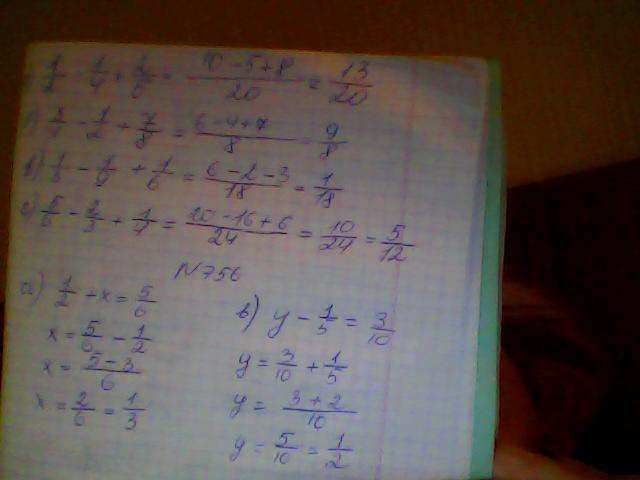 1/2 - 1/4 + 2/5 = (10 - 5 + 8)/20 = 13/20
3/4 - 1/2 + 7/8 = (6 - 4 + 7)/8 = 9/8
в) 1/3 - 1/9 + 1/6 = (6 - 2 - 3)/18 = 1/18
с) 5/6 - 2/3 + 1/4 = (20 - 16 + 6)/24 = 10/24 = 5/12
N 756
а) 1/2 + x = 5/6
x = 5/6 - 1/2
x = (5 - 3)/6
x = 2/6 = 1/3
в) y - 1/5 = 3/10
y = 3/10 + 1/5
y = (3 + 2)/10
y = 5/10 = 1/2